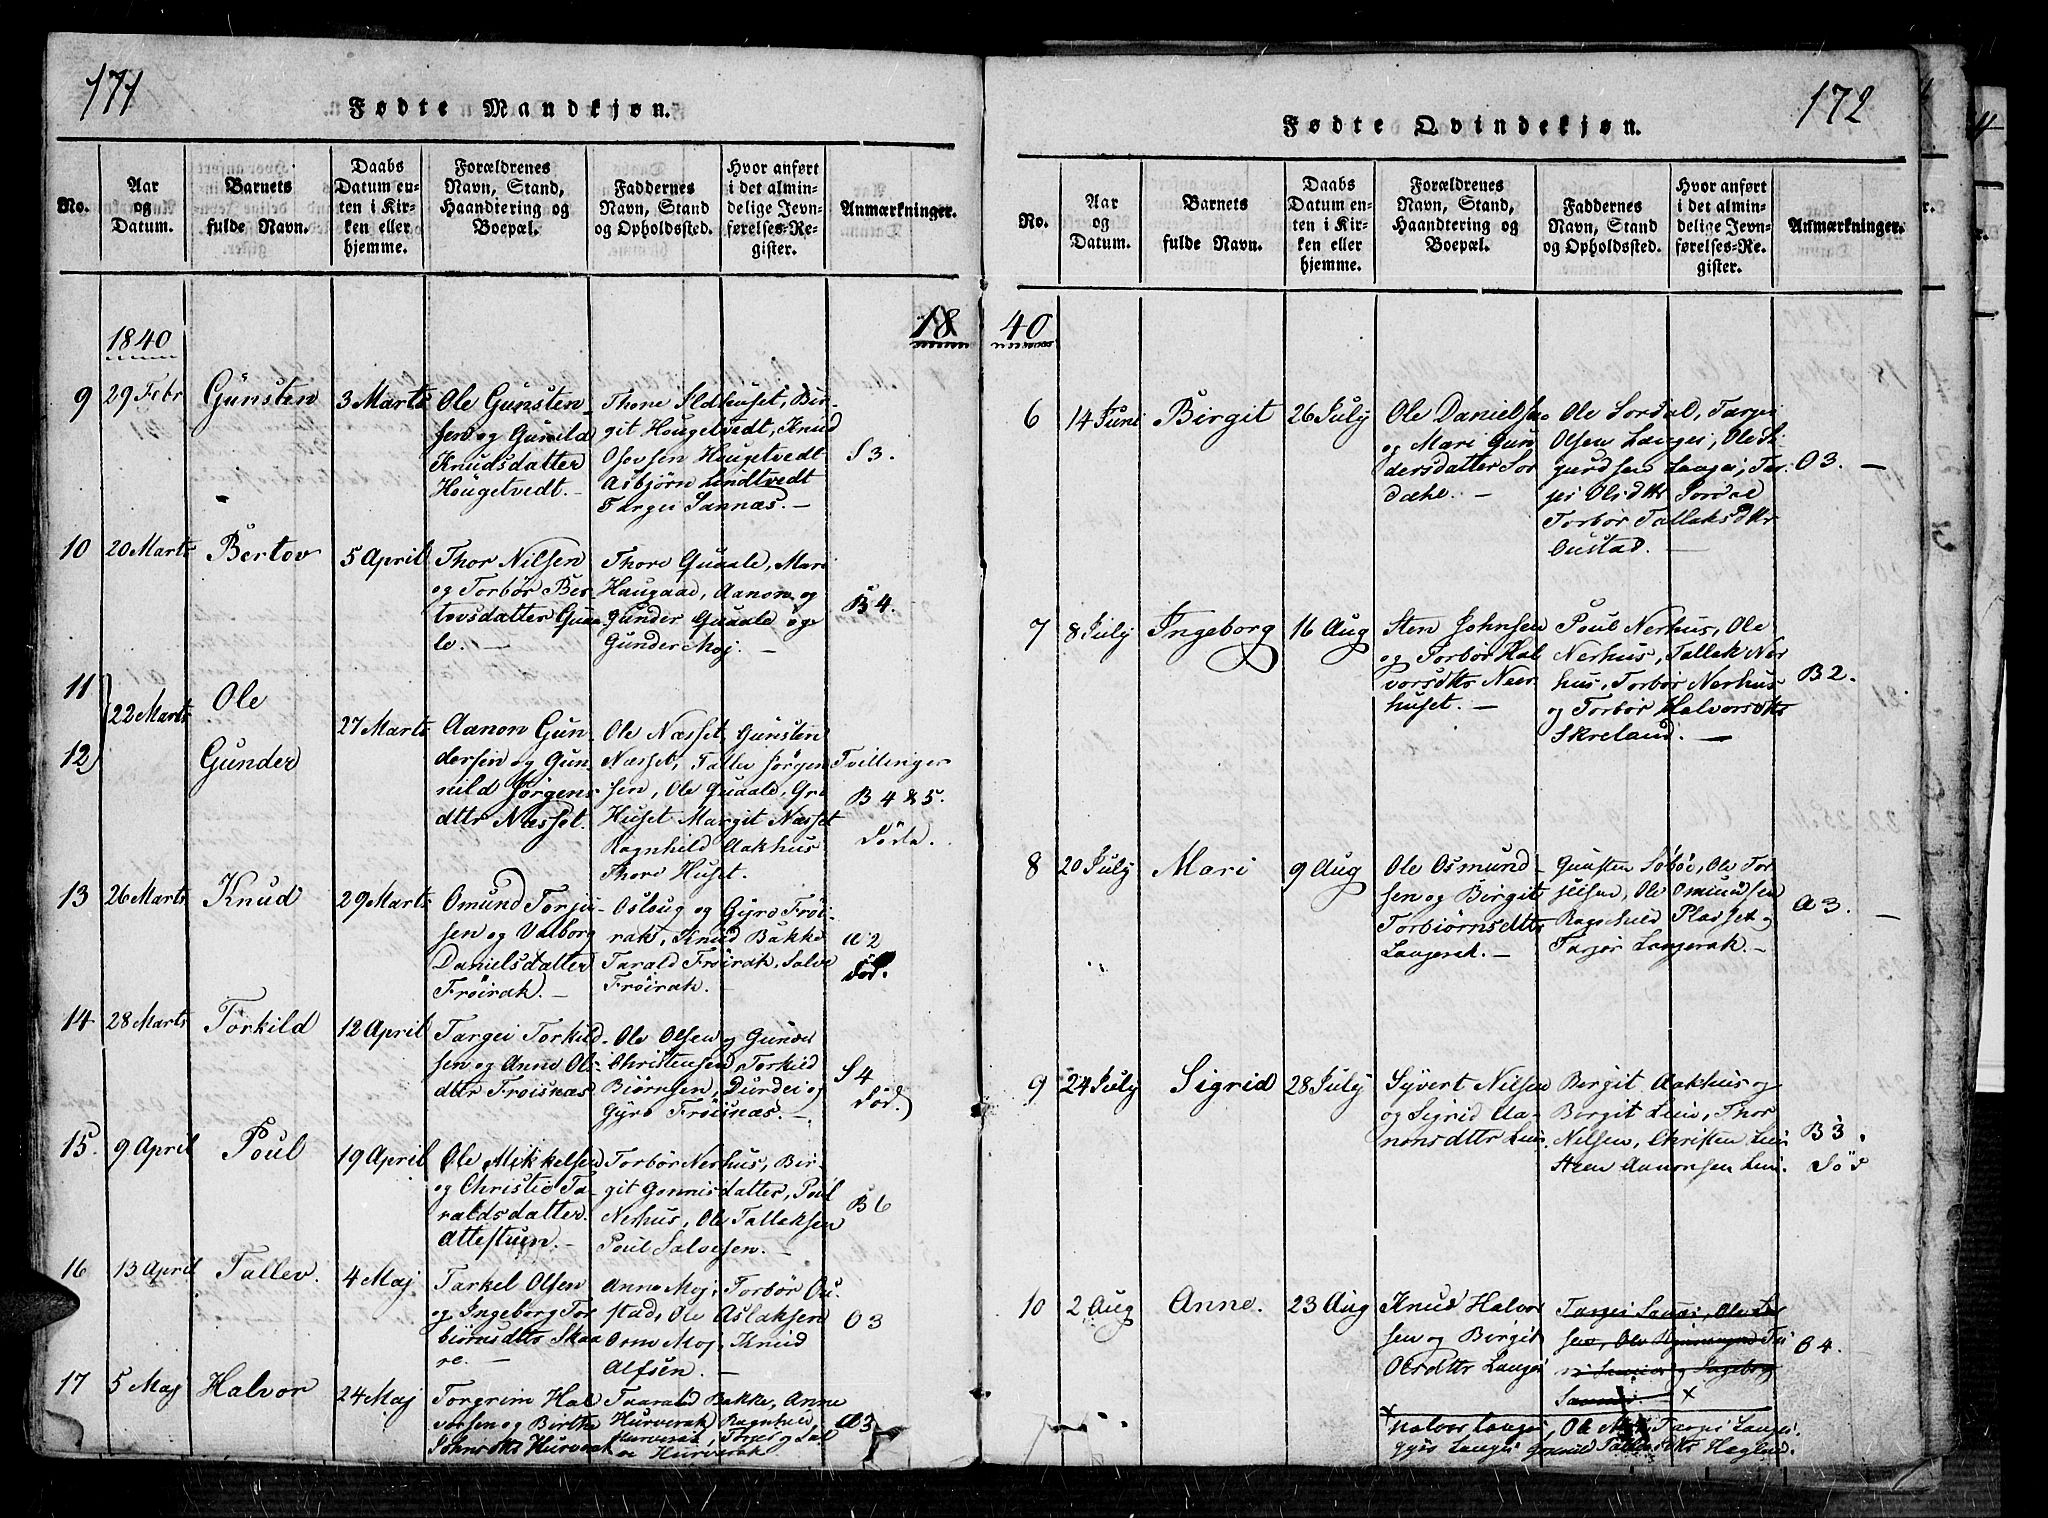 171
Fødte Mandkjøn.
No.
Aar og Datum.
Barnets fulde Navn.
Daabs Datum enten i Kirken eller hjemme.
Forældrenes Navn, Stand, Haandtering og Boepæl.
Faddernes Navn, Stand og Opholdssted.
Hvor anført i det almindelige Jevnførelses-Register.
Anmærkninger.
1840
18
9 29 Febr Günsten 3 Marts
Ole Günsten-
sen og Gunild
Knudsdatter
Hougetvedt. -
Thore Ildhuset, Bir-
git Hougetvedt, Knud
Osovsen Hougetvedt
Asbjørn Lindtvedt
Targei Sannæs. -
S 3.
10 20 Marts Bertov 5 April
Thor Nilsen
og Torbør Ber-
tovsdatter Quaa-
le. -
Thore Quaale, Mari
Haugaad, Aanon og
Gunder Quaale og
Gunder Moj. -
B 4.
11 22 Marts Ole
12 Gunder
27 Marts
Aanon Gun-
dersen og Gun-
nild Jørgens-
dttr Næsset.
Ole Næsset, Günsten
Næsset, Tallev Jörgen
sen, Ole Quaale, Gro
Huset Margit Næsset
Ragnhild Aakhus
Thore Huset.
Tvillinger
B 4 & 5.
Döde.
13 26 Marts Knud 29 Marts
Omund Torju-
sen og Valborg
Danielsdatter
Frøirak. -
Osloug og Gyro Frøi-
rak, Knud Bakke
Tarald Frøirak, Salve
Frøirak. -
A 2
Död.
14 28 Marts Torkild 12 April
Targei Torkild-
sen og Anne Ols-
dttr Froisnæs
Ole Olsen og Gunder
Christensen, Torkild
Biørnsen, Durdei og
Gyro Frøisnæs. -
S 4
Död.
15. 9 April Poul 19 April
Ole Mikkelsen
og Christie Ta-
raldsdatter
Attestuen. -
Torbør Nerhus, Bir-
git Gonnisdatter, Poul
Nerhus, Ole Tallaksen
Poul Salvesen. -
B 6
16 13 April Tallev. 4 Maj
Tarkel Olsen
og Ingeborg Tor-
biørnsdttr Skaa-
re. -
Anne Moj, Torbør Ou-
stad, Ole Aslaksen
Orm Moj, Knud
Alfsen. -
O 3
17 5 Maj Halvor 24 Maj
Torgrim Hal
vorsen og Birthe
Johnsdttr Hurverak
Taarald Bakke, Anne
Hurverak, Ragnhild
Hurverak, Torgei og Sal
ve Hurverak
A 3
172
Fødte Qvindekjøn.
No.
Aar og Datum.
Barnets fulde Navn.
Daabs Datum enten i Kirken eller hjemme.
Forældrenes Navn, Stand, Haandtering og Boepæl.
Faddernes Navn, Stand og Opholdssted.
Hvor anført i det almindelige Jevnførelses-Register.
Anmærkninger.
40
6 14 Juni Birgit 26 July
Ole Danielsen
og Mari Gun
dersdatter Sor
dahl. -
Ole Sordal, Targei
Olsen Langei, Ole Si-
gurdsen Langei, Tar-
jei Olsdttr Sordal
Torbør Tallaksdttr
Oustad. -
O 3. -
7 8 July Ingeborg 16 Aug
Sten Johnsen
og Torbør Hal
vorsdttr Neer-
huset. -
Poul Nerhus, Ole
Nerhus, Tallak Ner
hus, Torbør Nerhus
og Torbør Halvorsdttr
Skreland. -
B 2.
8 20 July Mari 9 Aug
Ole Osmund-
sen og Birgit
Torbiørnsdttr
Langerak. -
Gunsten Søbøe, Ole Tor-
jeisen, Ole Omundsen
Ragnhild Pladset og
Tarjer Langerak. -
A 3. -
9 24 July Sigrid 28 July
Syvert Nilsen
og Sigrid Aa-
nonsdttr Lein.
Bergit Aakhus og
Borgit Lein, Thor
Nilsen, Christen Lein
Sten Aanonsen Lein.
B 3.
Död
10 2 Aug Anne. 23 Aug
Knud Halvor
sen og Birgit
Olsdttr Langei
Targei
Sannes. - ×
O 4.
× Halvor Langei, Ole Targei Langei.
Gyro Langei Gunild Tallevsdttr Haglund.